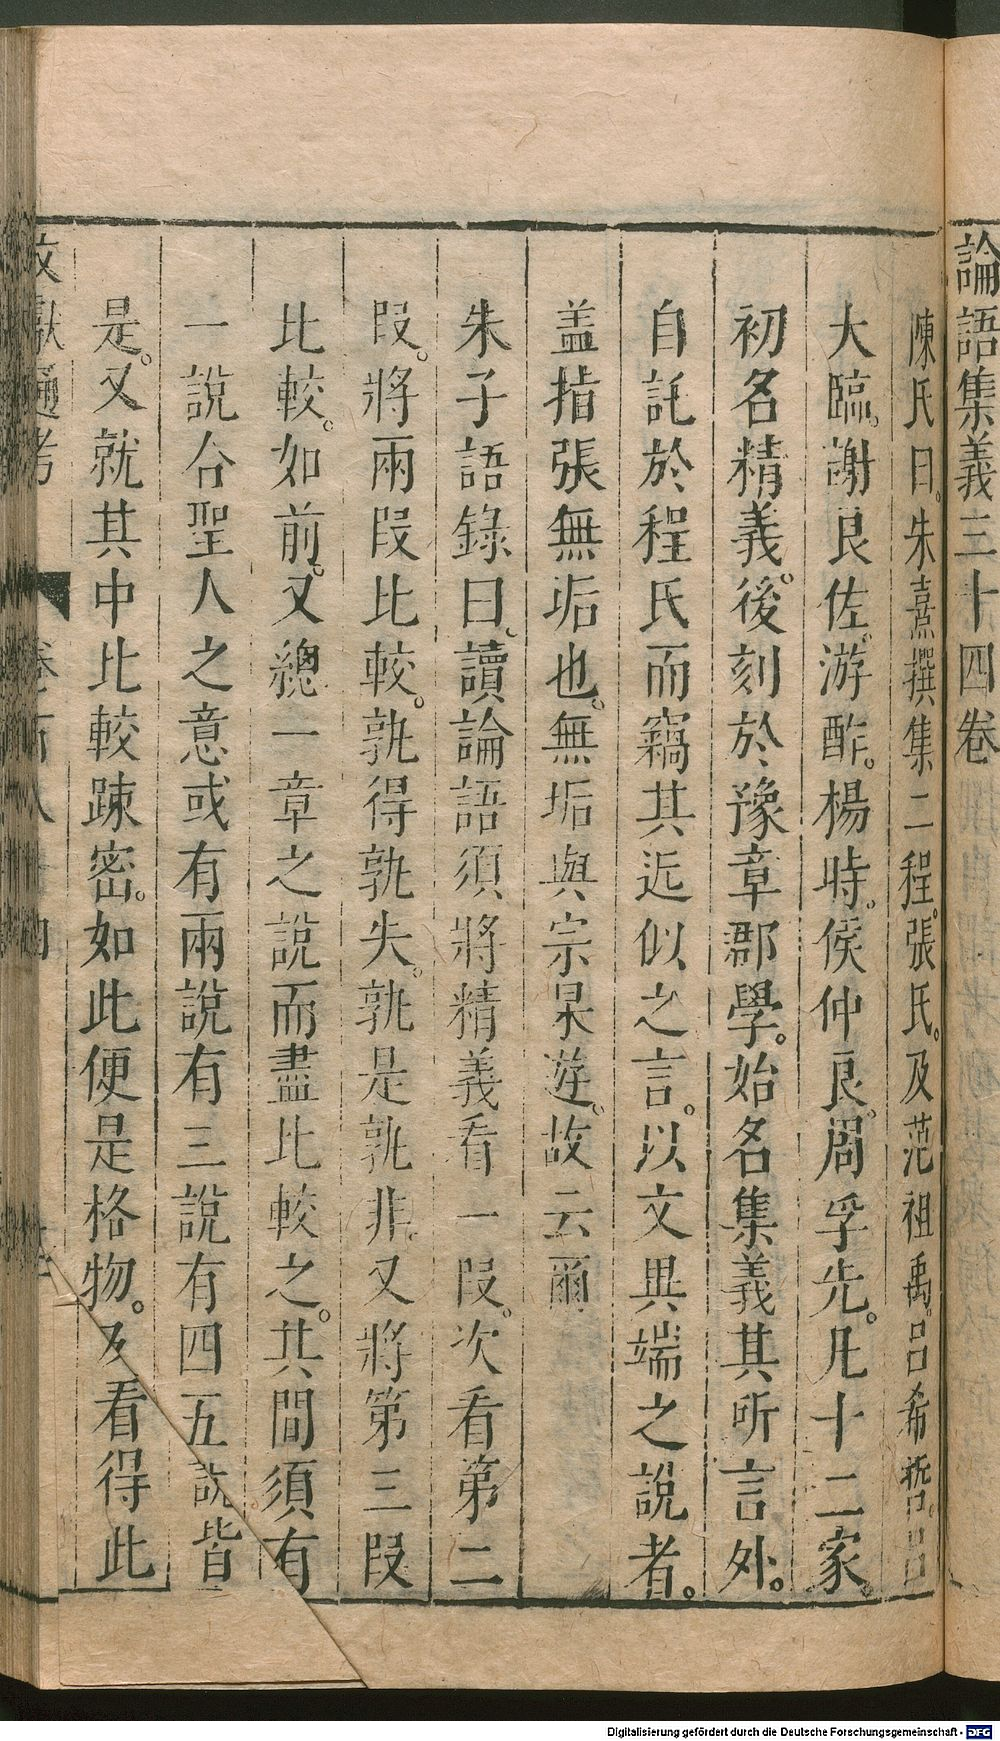 論語集義三十四卷
陳氏曰。朱熹撰集二程。張氏。及范祖禹。呂希哲。呂
大臨。謝良佐。游酢。楊時。侯仲良。周孚先。凡十二家。
初名精義。後刻於豫章郡學。始名集義其所言外。
自託於程氏而竊其近似之言。以文異端之說者。
盖指張無垢也。無垢與宗杲遊。故云爾
朱子語錄曰。讀論語須將精義看一段。次看第二
段。將兩段比較。孰得孰失。孰是孰非。又將第三段
比較。如前。又總一章之說而盡比較之。其間須有
一說合聖人之意或有兩說有三說有四五說皆
是。又就其中比較踈密。如此便是格物。及看得此
文獻通考 卷百八十四
Digitalisierung gefördert durch die Deutsche Forschungsgemeinschaft - DFG